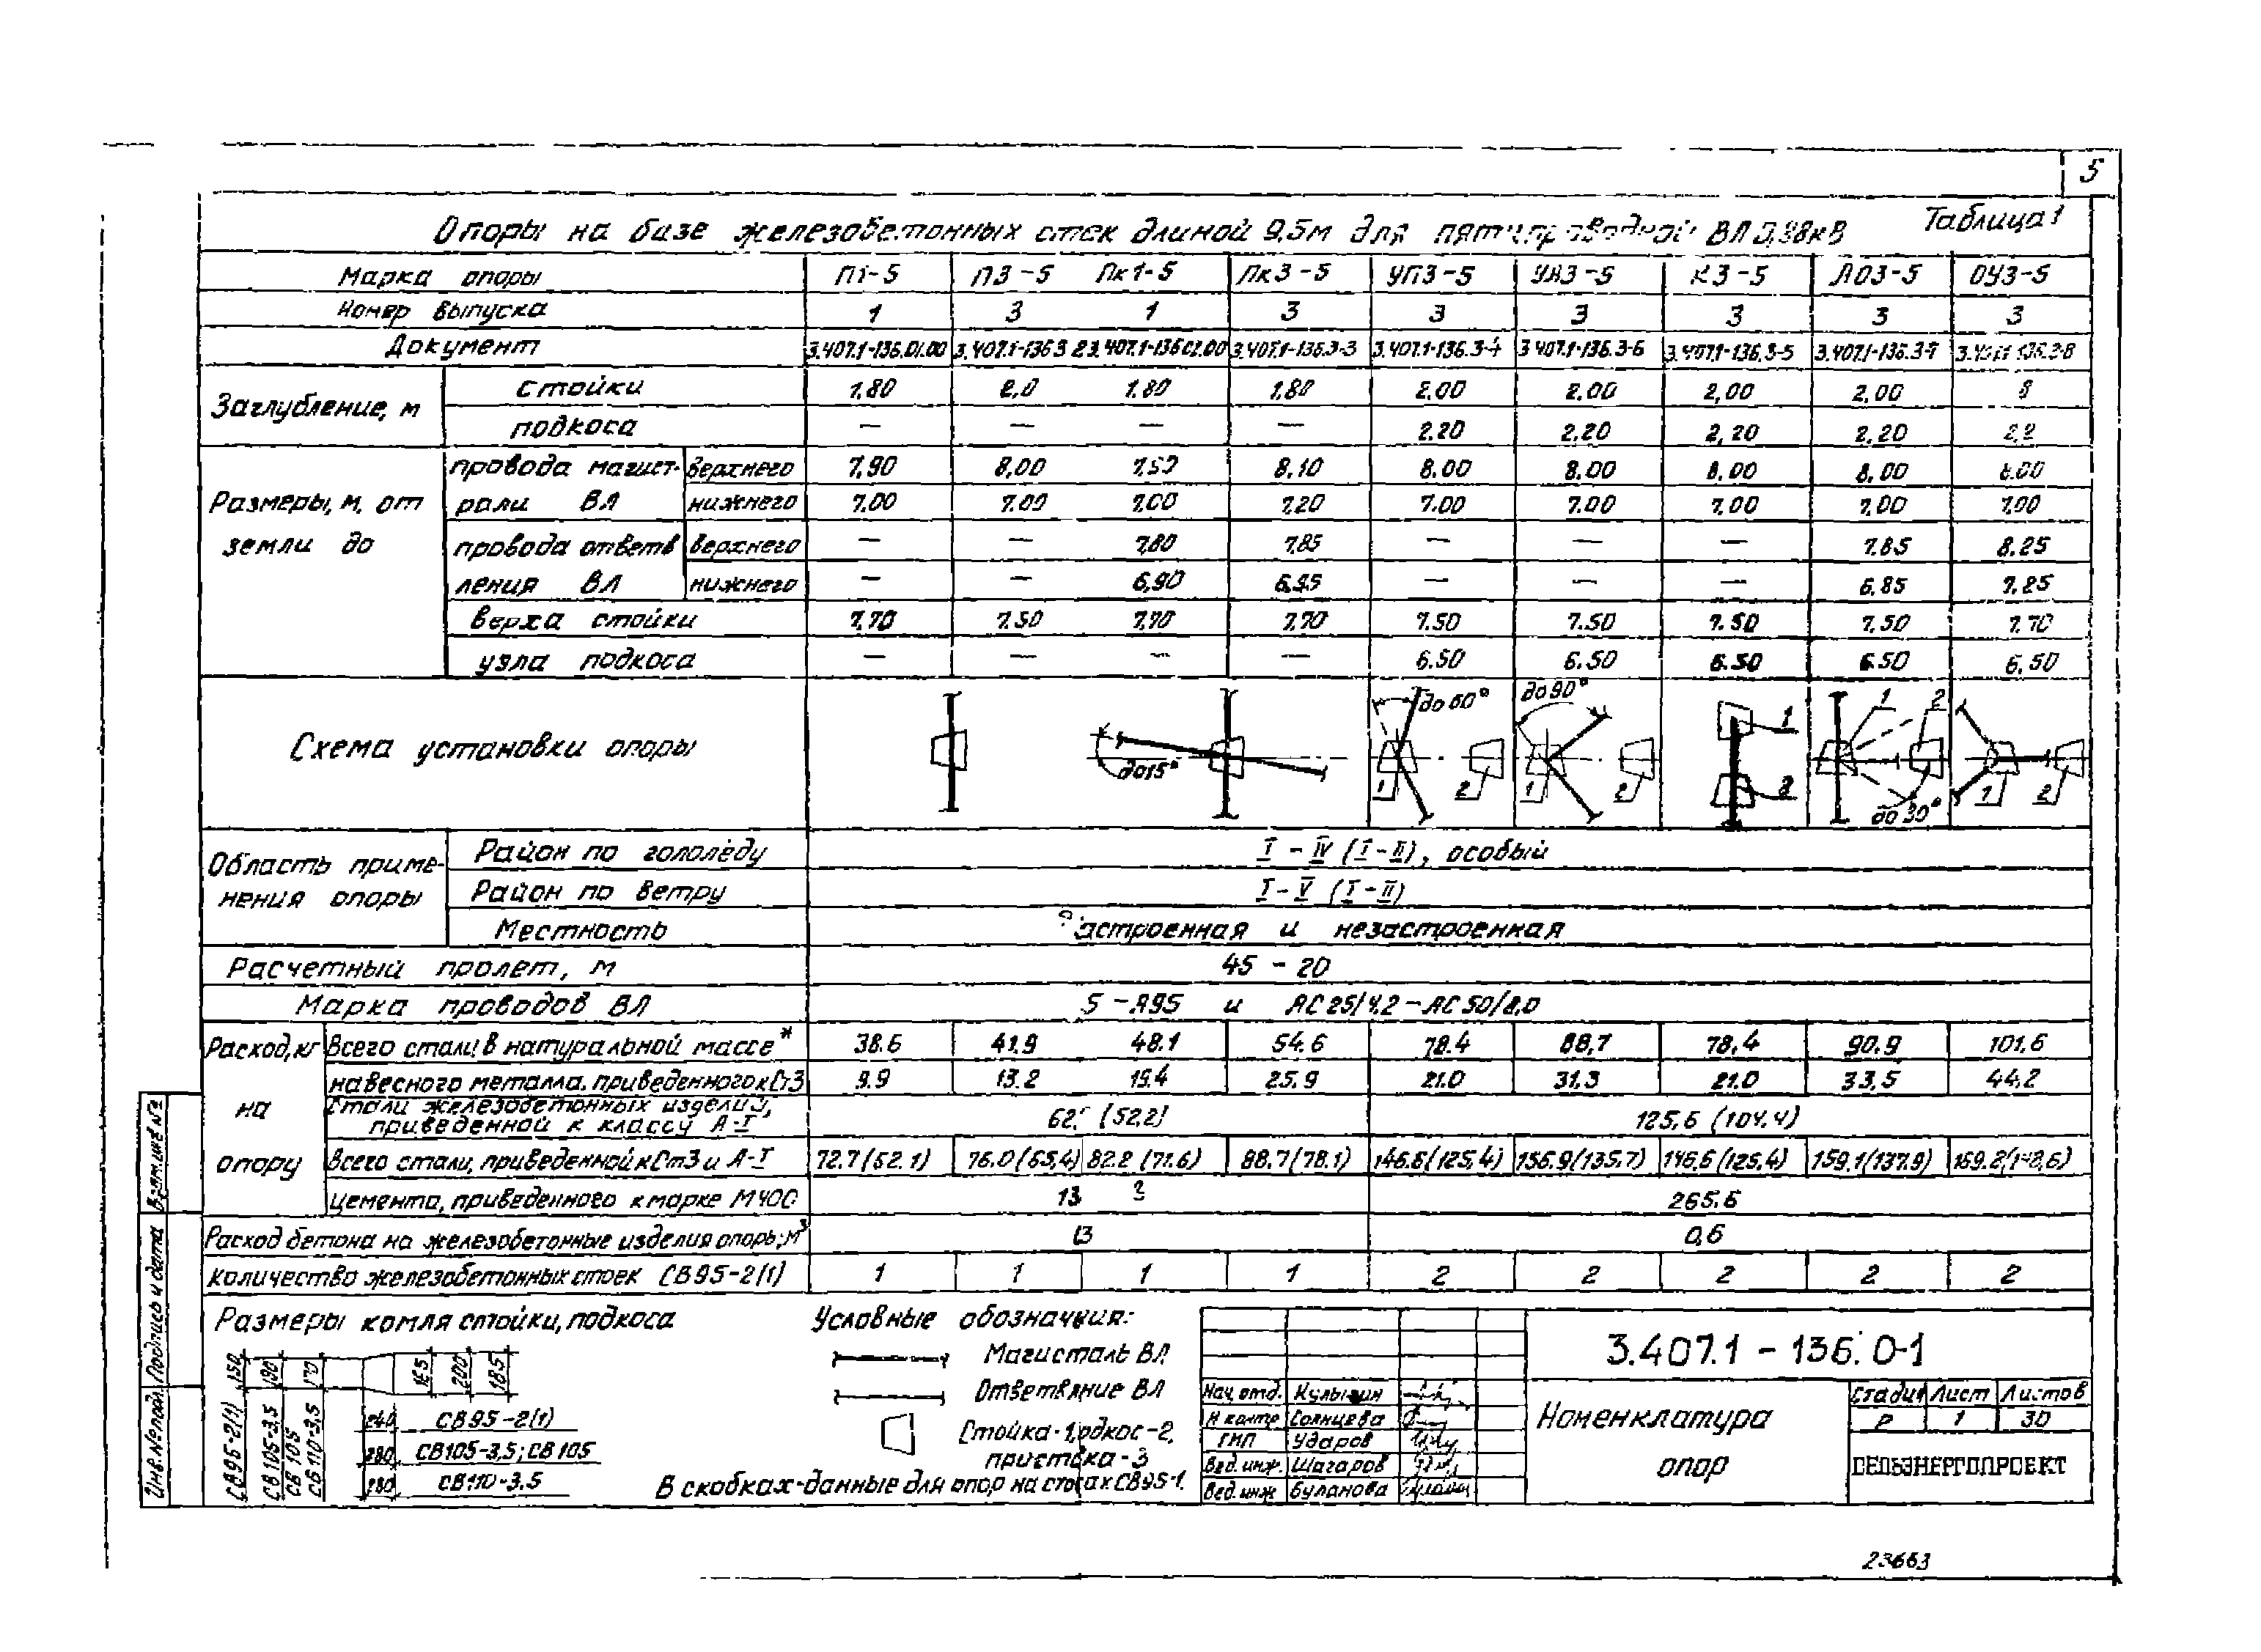 5
Таблица 1
Опоры на базе железобетонных стоек длиной 9,5м для пятипроводной ВЛ 0,38кВ
Марка опоры П1-5 П3-5 Пк1-5 Пк3-5 УП3-5 УА3-5 К3-5 ЛО3-5 ОУ3-5
Номер выпуска 1 3 1 3 3 3 3 3 3
Документ 3.407.1-136.01.00 3.407.1-136.3 3.407.1-136.02.00 3.407.1-136.3-3 3.407.1-136.3-4 3.407.1-136.3-6 3.407.1-136.3-5 3.407.1-136.3-7 3.407.1-136.3-8
Заглубление, м стойки 1,80 2,0 1,80 1,80 2,00 2,00 2,00 2,00
подкоса — — — — 2.20 2,20 2,20 2,20 2,2
Размеры, м, от земли до
провода магистрали ВЛ верхнего 7,90 8,00 7,50 8,10 8,00 8,00 8,00 8,00 8,00
нижнего 7,00 7,00 7,00 7,20 7,00 7,00 7,00 7,00 7,00
провода ответвления ВЛ верхнего — — 7,80 7,85 — — — 7,85 8,25
нижнего — — 6,90 6,95 — — — 6,85 7,25
верха стойки 7,70 7,50 7,70 7,70 7,50 7.50 7.50 7,50 7,70
узла подкоса — — — — 6.50 6.50 6.50 6.50 6,50
Схема установки опоры
до15° до 60° 1 2 до 90° 1 2 1 2 1 2 до 30° 1 2
Область применения опоры
Район по гололёду I - IV (I-II), особый
Район по ветру I-V (I-II)
Местность застроенная и незастроенная
Расчетный пролет, м 45 - 20
Марка проводов ВЛ 5 - А95 и АС25/4,2 - АС50/8,0
Расход, кг на опору
Всего стали в натуральной массе* 38.6 41.9 48.1 54.6 78.4 88,7 78,4 90.9 101,6
навесного металла, приведенного к Ст3 9.9 13.2 19.4 25.9 21.0 31.3 21.0 33,5 44,2
Стали железобетонных изделий, приведенной к классу А-I (52,2) 125,6 (104.4)
Всего стали, приведенной к Ст3 и А-I 72.7(62.1) 76.0(65,4) 82.2(71.6) 88,7(78.1) 146.6(125,4) 156.9(135.7) 146,6(125.4) 159.1(137.9) 169.8(148,6)
цемента, приведенного к марке М400 13 265.6
Расход бетона на железобетонные изделия опоры, м³ 0,6
Количество железобетонных стоек СВ95-2(1) 1 1 1 1 2 2 2 2 2
Размеры комля стойки, подкоса
150 190 170 165 200 185
СВ95-2(1)
СВ105-3,5
СВ 105
СВ 110-3,5
240 СВ95-2(1)
280 СВ105-3,5; СВ105
280 СВ110-3.5
Условные обозначения:
Магистраль ВЛ
Ответвление ВЛ
Стойка-1, подкос-2,
приставка-3
В скобках-данные для опор на стойках СВ95-1.
Нач. отд. Кулыгин
Н контр Солнцева
ГИП Ударов
Вед. инж. Шагаров
Вед. инж Буланова
3.407.1 - 136. 0-1
Номенклатура опор
Стадия Лист Листов
Р 1 30
СЕЛЬЭНЕРГОПРОЕКТ
Взам. инв №
Подпись и дата
Инв. № подл.
23663